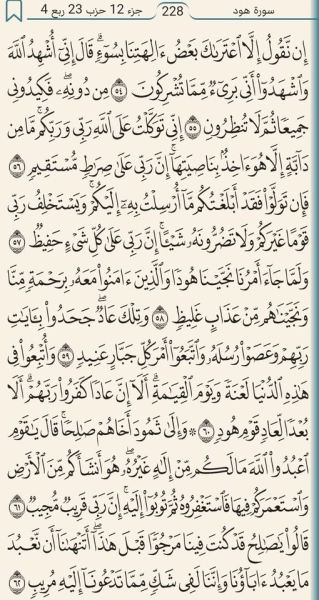 سورة هود 228 جزء 12 حزب 23 ربع 4
إِن نَّقُولُ إِلَّا ٱعْتَرَىٰكَ بَعْضُ ءَالِهَتِنَا بِسُوٓءٍۗ قَالَ إِنِّيٓ أُشْهِدُ ٱللَّهَ
وَٱشْهَدُوٓا۟ أَنِّي بَرِيٓءٌ مِّمَّا تُشْرِكُونَ ٥٤ مِن دُونِهِۦۖ فَكِيدُونِي
جَمِيعًا ثُمَّ لَا تُنظِرُونِ ٥٥ إِنِّي تَوَكَّلْتُ عَلَى ٱللَّهِ رَبِّي وَرَبِّكُمۚ مَّا مِن
دَآبَّةٍ إِلَّا هُوَ ءَاخِذٌۢ بِنَاصِيَتِهَآۚ إِنَّ رَبِّي عَلَىٰ صِرَٰطٍ مُّسْتَقِيمٍ ٥٦
فَإِن تَوَلَّوْا۟ فَقَدْ أَبْلَغْتُكُم مَّآ أُرْسِلْتُ بِهِۦٓ إِلَيْكُمْۚ وَيَسْتَخْلِفُ رَبِّي
قَوْمًا غَيْرَكُمْ وَلَا تَضُرُّونَهُۥ شَيْـًٔاۚ إِنَّ رَبِّي عَلَىٰ كُلِّ شَيْءٍ حَفِيظٌ ٥٧
وَلَمَّا جَآءَ أَمْرُنَا نَجَّيْنَا هُودًا وَٱلَّذِينَ ءَامَنُوا۟ مَعَهُۥ بِرَحْمَةٍ مِّنَّا
وَنَجَّيْنَٰهُم مِّنْ عَذَابٍ غَلِيظٍ ٥٨ وَتِلْكَ عَادٌۖ جَحَدُوا۟ بِـَٔايَٰتِ
رَبِّهِمْ وَعَصَوْا۟ رُسُلَهُۥ وَٱتَّبَعُوٓا۟ أَمْرَ كُلِّ جَبَّارٍ عَنِيدٍ ٥٩ وَأُتْبِعُوا۟ فِي
هَٰذِهِ ٱلدُّنْيَا لَعْنَةً وَيَوْمَ ٱلْقِيَٰمَةِۗ أَلَآ إِنَّ عَادًا كَفَرُوا۟ رَبَّهُمْۗ أَلَا
بُعْدًا لِّعَادٍ قَوْمِ هُودٍ ٦٠ ۞ وَإِلَىٰ ثَمُودَ أَخَاهُمْ صَٰلِحًاۚ قَالَ يَٰقَوْمِ
ٱعْبُدُوا۟ ٱللَّهَ مَا لَكُم مِّنْ إِلَٰهٍ غَيْرُهُۥۖ هُوَ أَنشَأَكُم مِّنَ ٱلْأَرْضِ
وَٱسْتَعْمَرَكُمْ فِيهَا فَٱسْتَغْفِرُوهُ ثُمَّ تُوبُوٓا۟ إِلَيْهِۚ إِنَّ رَبِّي قَرِيبٌ مُّجِيبٌ ٦١
قَالُوا۟ يَٰصَٰلِحُ قَدْ كُنتَ فِينَا مَرْجُوًّا قَبْلَ هَٰذَآۖ أَتَنْهَىٰنَآ أَن نَّعْبُدَ
مَا يَعْبُدُ ءَابَآؤُنَا وَإِنَّنَا لَفِي شَكٍّ مِّمَّا تَدْعُونَآ إِلَيْهِ مُرِيبٍ ٦٢